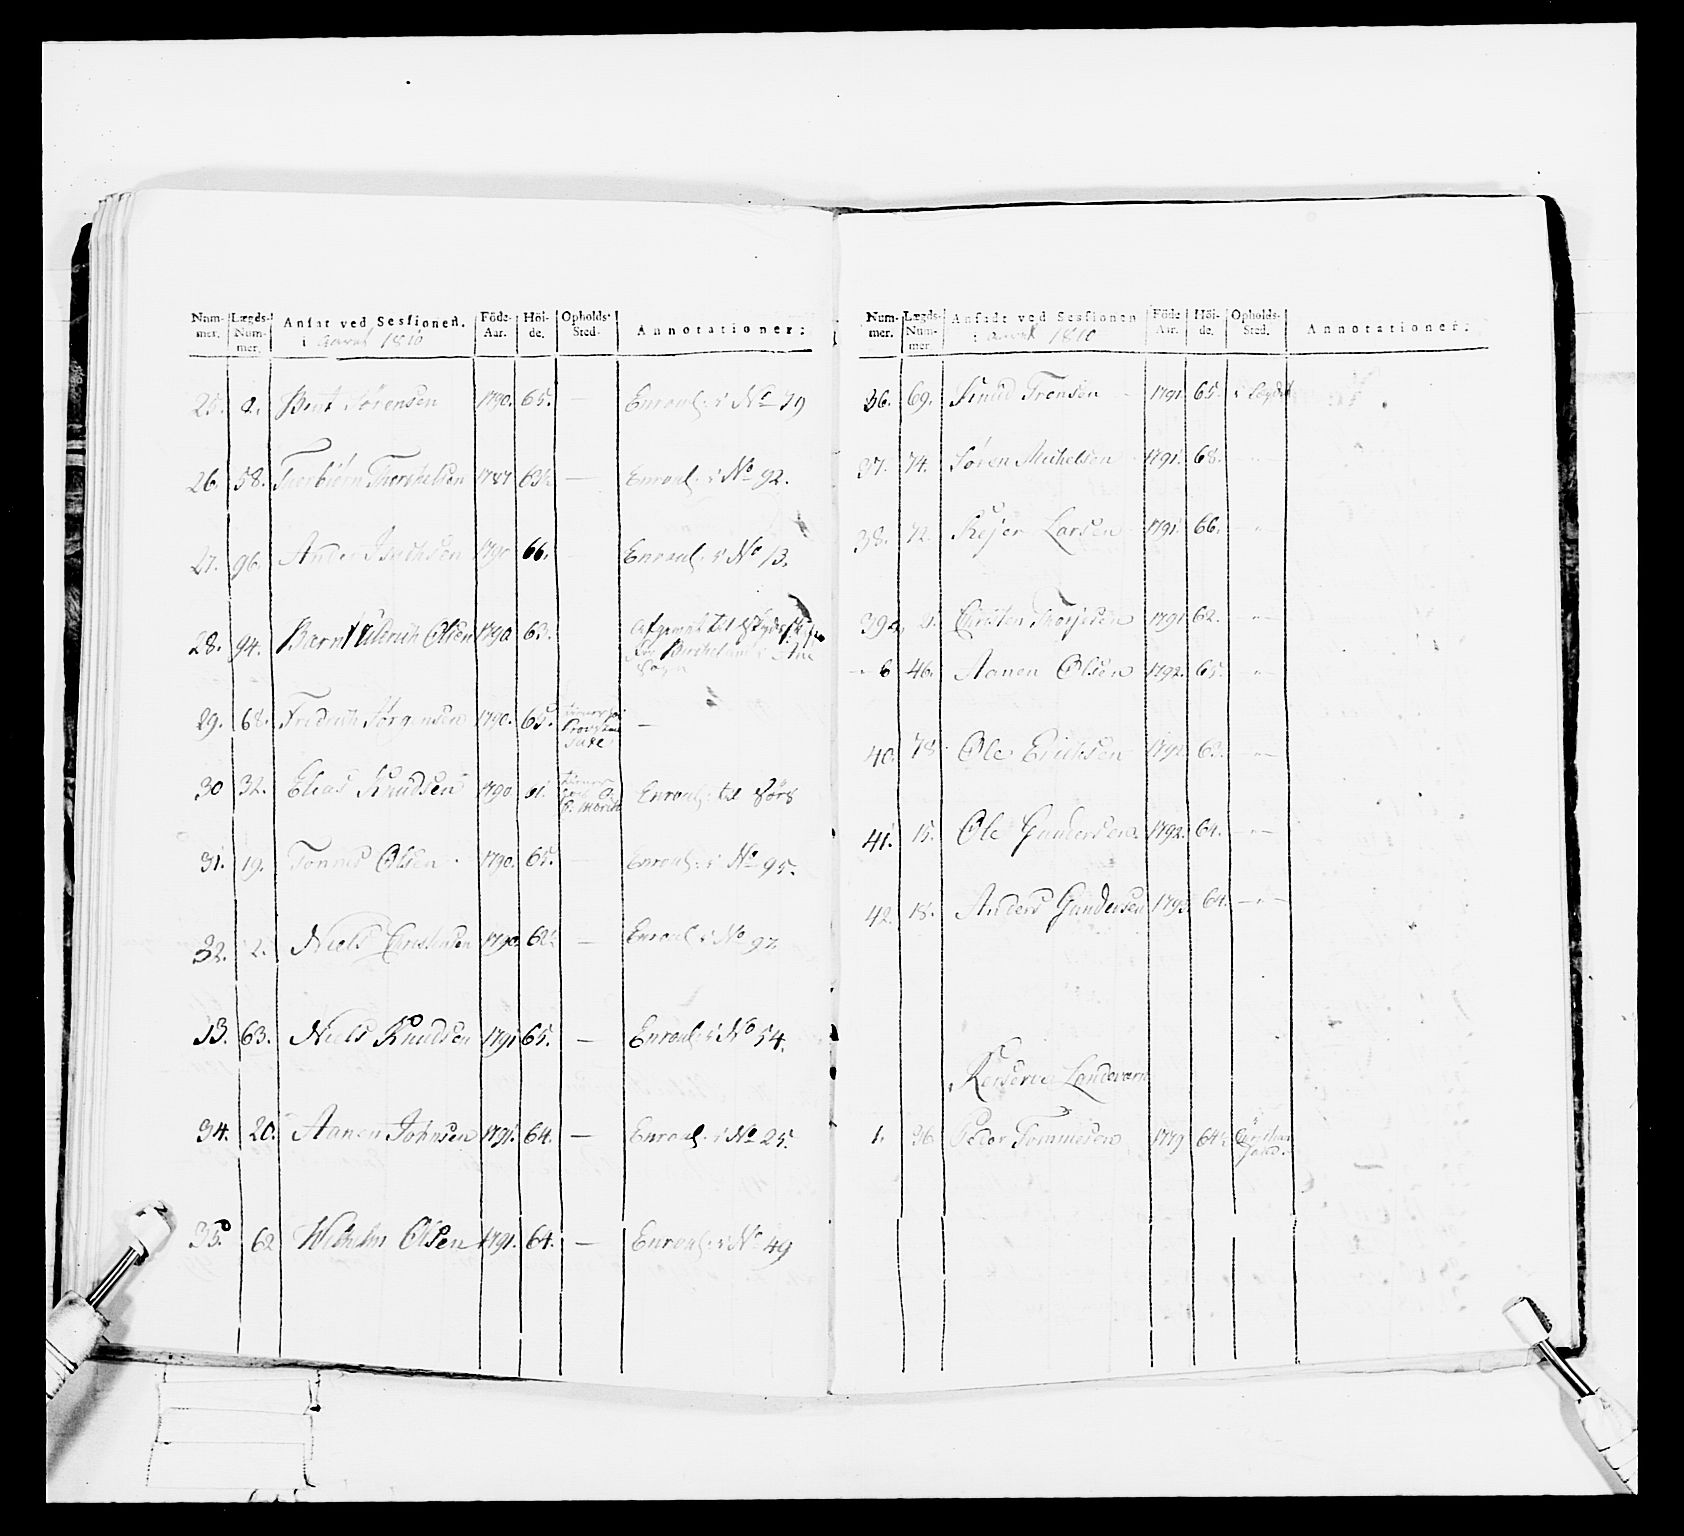 Num-mer. Lægds-Num-mer. Ansat ved Sessionen. i Aaret 1810 Föde-Aar. Höi-de. Opholds-Sted. Annotationer:
25. 2. Bent Sörensen 1790. 65. — Enroul: i No 79
26. 58. Torbiörn Thorkelsen 1787 63. — Enroul: i No 92.
27. 96. Anders Isachsen 1790 66. Enroul: i No 13.
28. 94. Barnt Olsen 1790 63. Afgewet til
Sogn
29. 68. Fredrich Jörgensen 1790. 65. —
30 32. Elias Knudsen 1790 61. Enroul: til Sörs
31. 19. Tönnes Olsen 1790. 65. Enroul: i No 95.
32. 2. Niels Christensen 1790. 62 — Enroul i No 97
33. 63. Niels Knudsen 1791 65. — Enroul: i No 54.
34. 20. Aanen Johnsen 1791. 64. — Enroul: i No 25.
35. 62 Wilhelm Olsen 1791. 64. — Enroul: i No 49
Num-mer. Lægds-Num-mer. Ansadt ved Sessionen i Aaret 1810 Föde Aar. Höi-de. Opholds-Sted. Annotationer:
36. 69. Knud Tronsen 1791 65. i Lægdet
37. 74. Sören Michelsen 1791. 68. — " —
38. 72. Rejer Larsen 1791. 66. — " —
39 a, 21. Christen Thorjesen 1791 62. — " —
- " b 46. Aanen Olsen 1792. 65. — " —
40. 78. Ole Erichsen 1792 63. — " —
41. 15. Ole Gundersen. 1792. 64. — " —
42. 18. Anders Gundersen 1793 64. — " —
Reserve Landeværn
1. 36 Peder Tommesen 1779 64